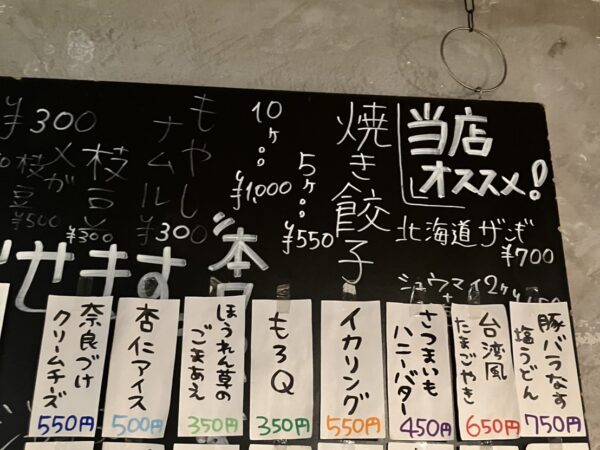 当店
オススメ!
北海道ザンギ
¥700
シュウマイ2ヶ
焼き餃子
5ヶ
¥550
10ヶ
¥1,000
もやし
ナムル
¥300
枝豆
¥300
枝豆
¥500
¥300
せます
本日
豚バラなす
塩うどん
750円
台湾風
たまごやき
650円
さつまいも
ハニーバター
450円
イカリング
550円
もろQ
350円
ほうれん草の
ごまあえ
350円
杏仁アイス
500円
奈良づけ
クリームチーズ
550円